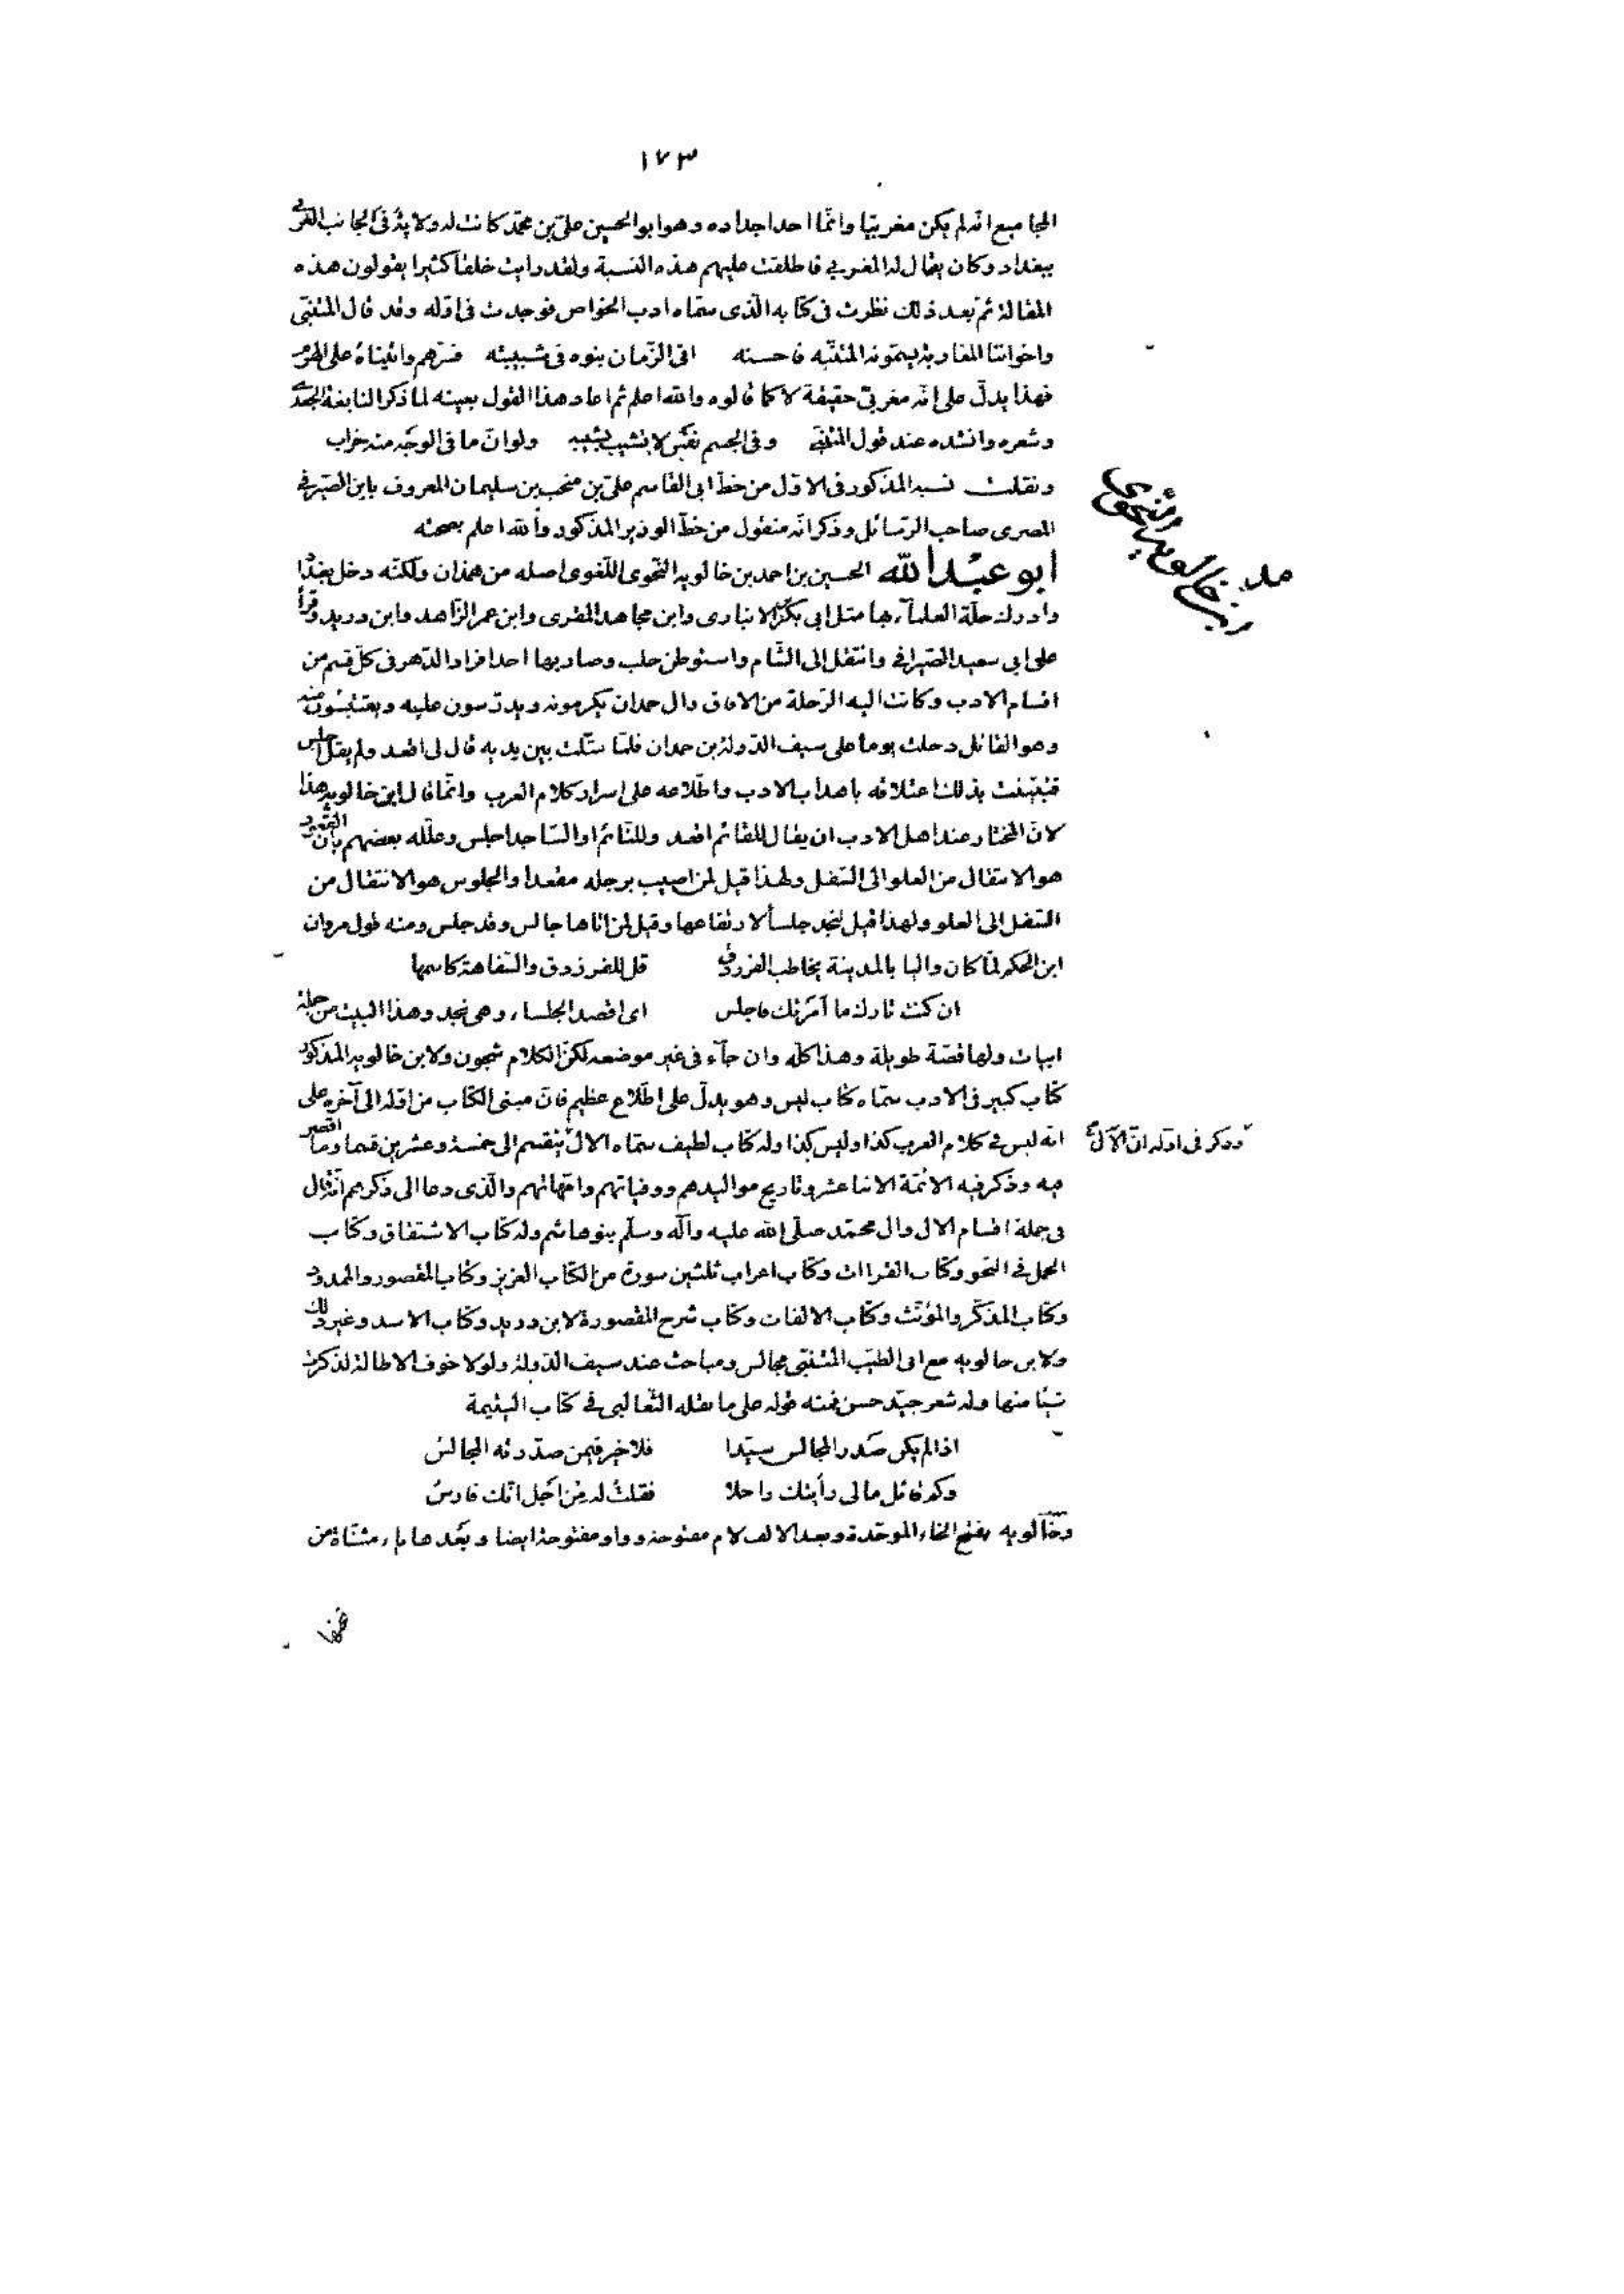 ١٧٣
المجاميع انه لم يكن مغربيّا وانّما احد اجداده وهو ابو الحسين علىّ بن محمّد كانت له ولاية فى الجانب الغربى
ببغداد وكان يقال له المغربي فاطلقت عليهم هذه النسبة ولقد رايت خلقا كثيرا يقولون هذه
المقالة ثم بعد ذلك نظرت فى كتابه الّذى سمّاه ادب الخواص فوجدت فى اوّله وقد قال المتنبّى
واخواننا المغاربة يسمّونه المتنبّه فاحسنه اتى الزّمان بنوه فى شبيبته فسرّهم واتيناه على الهرم
فهذا يدلّ على انّه مغربىّ حقيقة لا كما قالوه والله اعلم ثم اعاد هذا القول بعينه لما ذكر النابغة الجعدى
وشعره وانشده عند قول المتنبّى وفى الجسم نفس لا تشيب بشيبه ولو انّ ما فى الوجه منه حراب
ونقلت نسبه المذكور فى الاوّل من خطّ ابى القاسم علىّ بن منجب بن سليمان المعروف بابن الصّيرفى
المصرى صاحب الرّسائل وذكر انّه منقول من خطّ الوزير المذكور والله اعلم بصحته
ابو عبد الله الحسين بن احمد بن خالويه النّحوى اللّغوى اصله من همذان ولكنّه دخل بغداد
وادرك جلّة العلمآء بها مثل ابى بكر بن الانبارى وابن مجاهد المقرى وابن عمر الزّاهد وابن دريد وقرأ
على ابى سعيد الصّيرافى وانتقل الى الشّام واستوطن حلب وصار بها احد افراد الدّهر فى كلّ قسم من
اقسام الادب وكانت اليه الرّحلة من الافاق وال حمدان يكرمونه ويدرّسون عليه ويقتبسون منه
وهو القائل دخلت يوما على سيف الدّولة بن حمدان فلمّا مثّلت بين يديه قال لى اقعد ولم يقل اجلس
فتبيّنت بذلك اعتلاقه باهداب الادب واطّلاعه على اسرار كلام العرب وانّما قال ابن خالويه هذا
لانّ المختار عند اهل الادب ان يقال للقائم اقعد وللنّائم او السّاجد اجلس وعلّله بعضهم بانّ القعود
هو الانتقال من العلو الى السّفل ولهذا قيل لمن اصيب برجله مقعد والجلوس هو الانتقال من
السّفل الى العلو ولهذا قيل لنجد جلسا لارتفاعها وقيل لمن اتاها جالس وقد جلس ومنه قول مروان
ابن الحكم لمّا كان واليا بالمدينة يخاطب الفرزدق قل للفرزدق والسّفاهة كاسمها
ان كنت تارك ما آمرتك فاجلس اى اقصد الجلساء وهى نجد وهذا البيت من جملة
ابيات ولها قصّة طويلة وهذا كلّه وان جآء فى غير موضعه لكن الكلام شجون ولابن خالويه المذكور
كتاب كبير فى الادب سمّاه كتاب ليس وهو يدلّ على اطّلاع عظيم فان مبنى الكتاب من اوّله الى آخره على
انّه ليس فى كلام العرب كذا وليس كذا وله كتاب لطيف سمّاه الالّ ينقسم الى خمسة وعشرين قسما وما اقصر
فيه وذكر فيه الائمّة الاثنا عشر وتاريخ مواليدهم ووفياتهم وامّهاتهم والّذى دعا الى ذكرهم انّه قال
فى جملة اقسام الال وال محمّد صلّى الله عليه وآله وسلّم بنو هاشم وله كتاب الاشتقاق وكتاب
الجمل فى النّحو وكتاب القراات وكتاب اعراب ثلثين سورة من الكتاب العزيز وكتاب المقصور والممدود
وكتاب المذكّر والمؤنّث وكتاب الالفات وكتاب شرح المقصورة لابن دريد وكتاب الاسد وغير ذلك
ولابن خالويه مع ابى الطيّب المتنبّى مجالس ومباحث عند سيف الدّولة ولولا خوف الاطالة لذكرت
شيئا منها وله شعر جيّد حسن فمنه قوله على ما نقله الثّعالبى فى كتاب اليتيمة
اذا لم يكن صدر المجالس سيّدا فلا خير فيمن صدّرته المجالس
وكم قائل مالى رأيتك راجلا فقلت له من اجل انّك فارس
وخالويه بفتح الخاء الموحّدة وبعد الالف لام مفتوحة وواو مفتوحة ايضا وبعدها ياء مثنّاة من
ابن خالويه النحوى
وذكر فى اوّله انّ الآل
تحتها